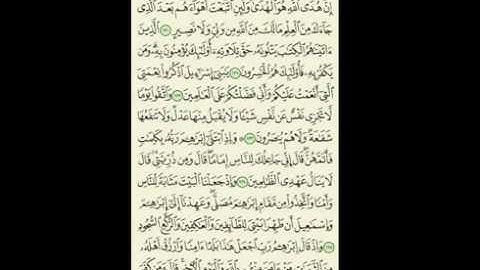 إن هدى الله هو الهدى ولئن اتبعت أهواءهم بعد الذي
جاءك من العلم ما لك من الله من ولي ولا نصير ١٢٠ الذين
ءاتيناهم الكتاب يتلونه حق تلاوته أولئك يؤمنون به ومن
يكفر به فأولئك هم الخاسرون ١٢١ يبني إسرءيل اذكروا نعمتي
التي أنعمت عليكم وأني فضلتكم على العالمين ١٢٢ واتقوا يوما
لا تجزي نفس عن نفس شيئا ولا يقبل منها عدل ولا تنفعها
شفعة ولا هم ينصرون ١٢٣ وإذ ابتلى إبرهم ربه بكلمت
فأتمهن قال إني جاعلك للناس إماما قال ومن ذريتي قال
لا ينال عهدي الظالمين ١٢٤ وإذ جعلنا البيت مثابة للناس
وأمنا واتخذوا من مقام إبرهم مصلى وعهدنا إلى إبرهم
وإسمعيل أن طهرا بيتي للطائفين والعكفين والركع السجود
١٢٥ وإذ قال إبرهم رب اجعل هذا بلدا ءامنا وارزق أهله
من الثمرت من ءامن منهم بالله واليوم الأخر قال ومن كفر